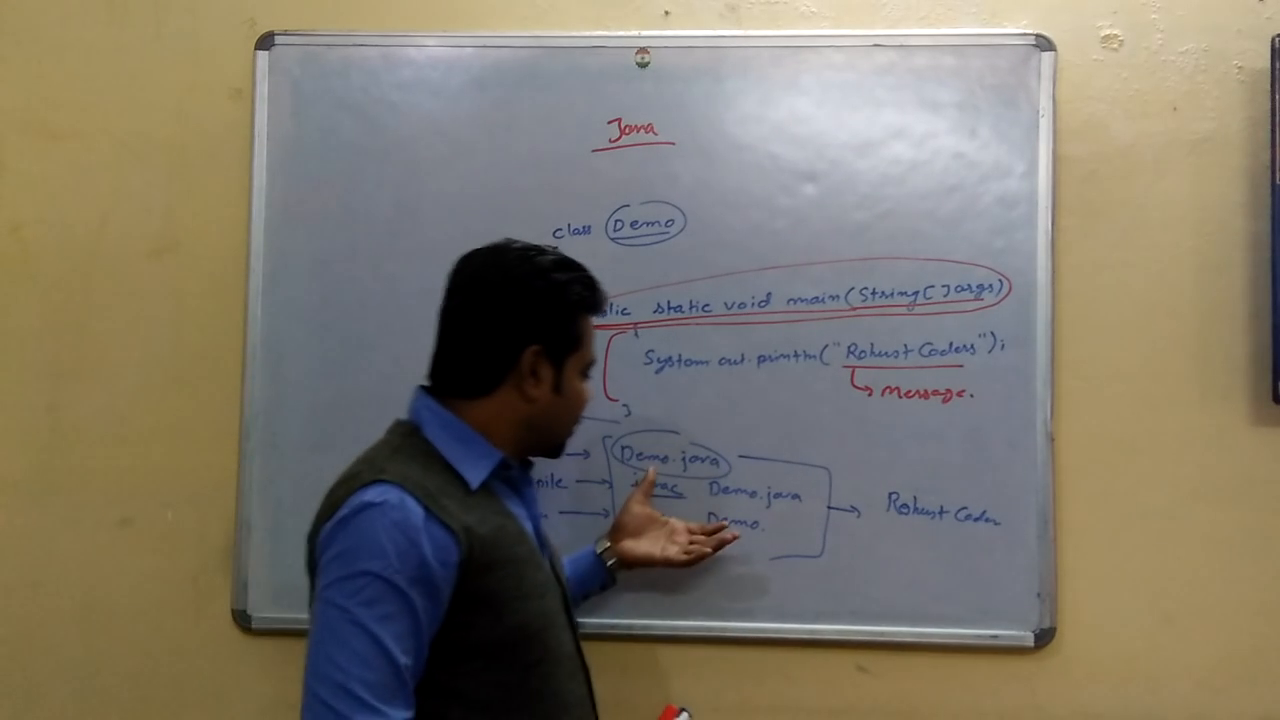 Java
class Demo
lic static void main(String[]args)
{
System.out.println("Robust Coders");
Message.
}
Demo.java
nile javac Demo.java
Demo.
Robust Coder